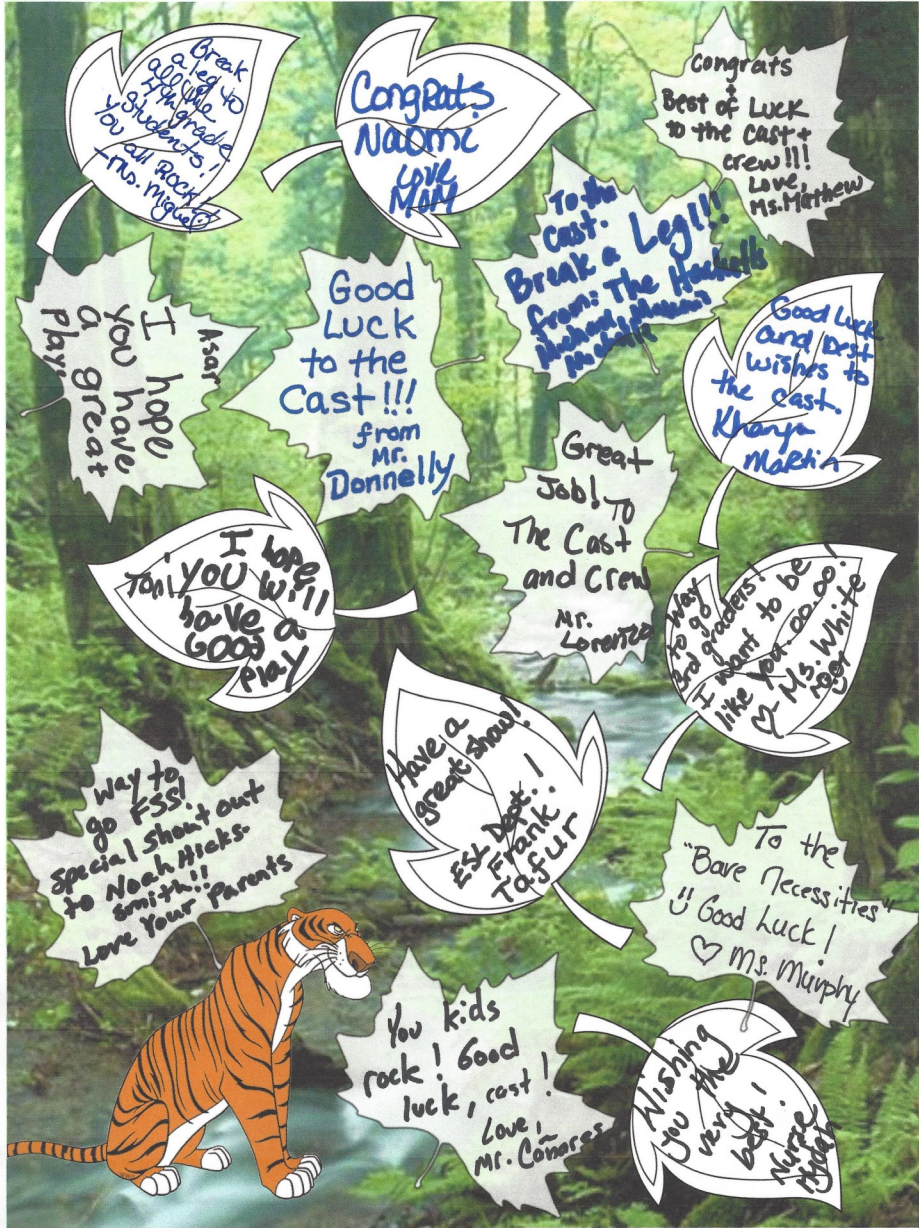 Break
a leg to
all the
4th grade
students!
You all ROCK!
-Ms. Miguel
CongRats
Naomi
Love
MOM
Congrats
+
Best of Luck
to the cast +
crew!!!
Love,
Ms. Mathew
To the
cast.
Break a Leg!!!
from: The Haskells
Michael,
Asar
I hope
you have
a great
Play.
Good
Luck
to the
Cast!!!
from
Mr.
Donnelly
Good Luck
and best
wishes to
the cast.
Khanya
Martin
Great
Job! To
The Cast
and Crew
Mr.
Lorenzo
Toni
I hope
YOU will
have a
GOOD
play
Way
to go
3rd graders!
I want to be
like you-oo-oo!
♡ Ms. White
Have a
great show!
ESL Dept.!
Frank
Tafur
Way to
go FSS!
Special Shout out
to Noah Hicks-
Smith!!
Love Your Parents
To the
"Bare Necessities"
Good Luck!
♡ Ms. Murphy
You kids
rock! Good
luck, cast!
Love,
Mr.
Wishing
you the
very
best!
Nurse